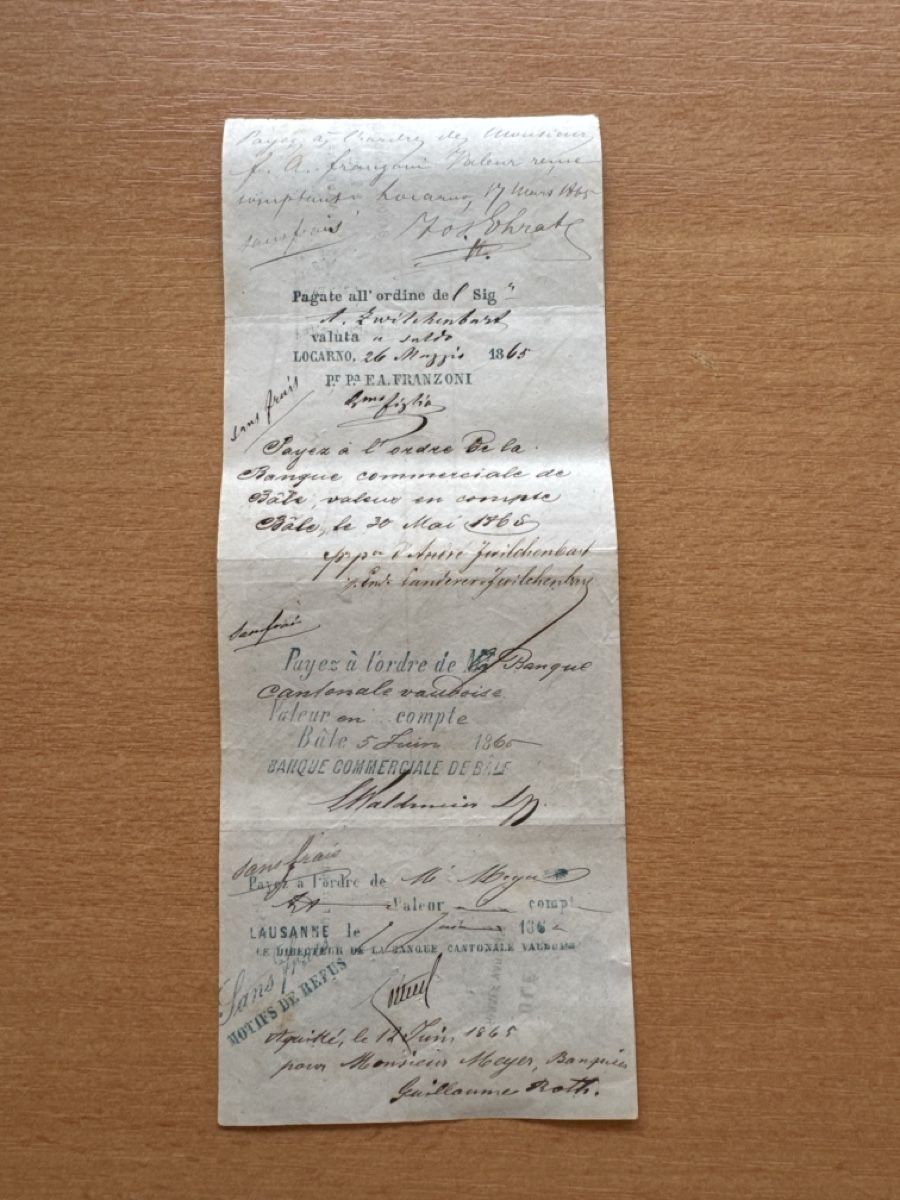 Payez à l'ordre de Monsieur
f. A. franzoni Valeur reçue
comptant Locarno, 17 Mars 1865
sans frais
Pagate all'ordine del Sig
A. Zwilchenbart
valuta a saldo
LOCARNO, 26 Maggio 1865
Pr. Pa. F. A. FRANZONI
figlio
sans frais
Payez à l'ordre de la
Banque commerciale de
Bâle, valeur en compte
Bâle, le 30 Mai 1865
d'André Zwilchenbart
Landerer-Zwilchenbart
sans frais
Payez à l'ordre de la Banque
cantonale vaudoise
Valeur en compte
Bâle 5 Juin 1865
BANQUE COMMERCIALE DE BÂLE
sans frais
Payez à l'ordre de Mr Meyer
Valeur compte
LAUSANNE le Juin 186
LE DIRECTEUR DE LA BANQUE CANTONALE VAUDOISE
Sans frais
MOTIFS DE REFUS
Aquitté, le 12 Juin 1865
pour Monsieur Meyer, Banquier
Guillaume Roth.